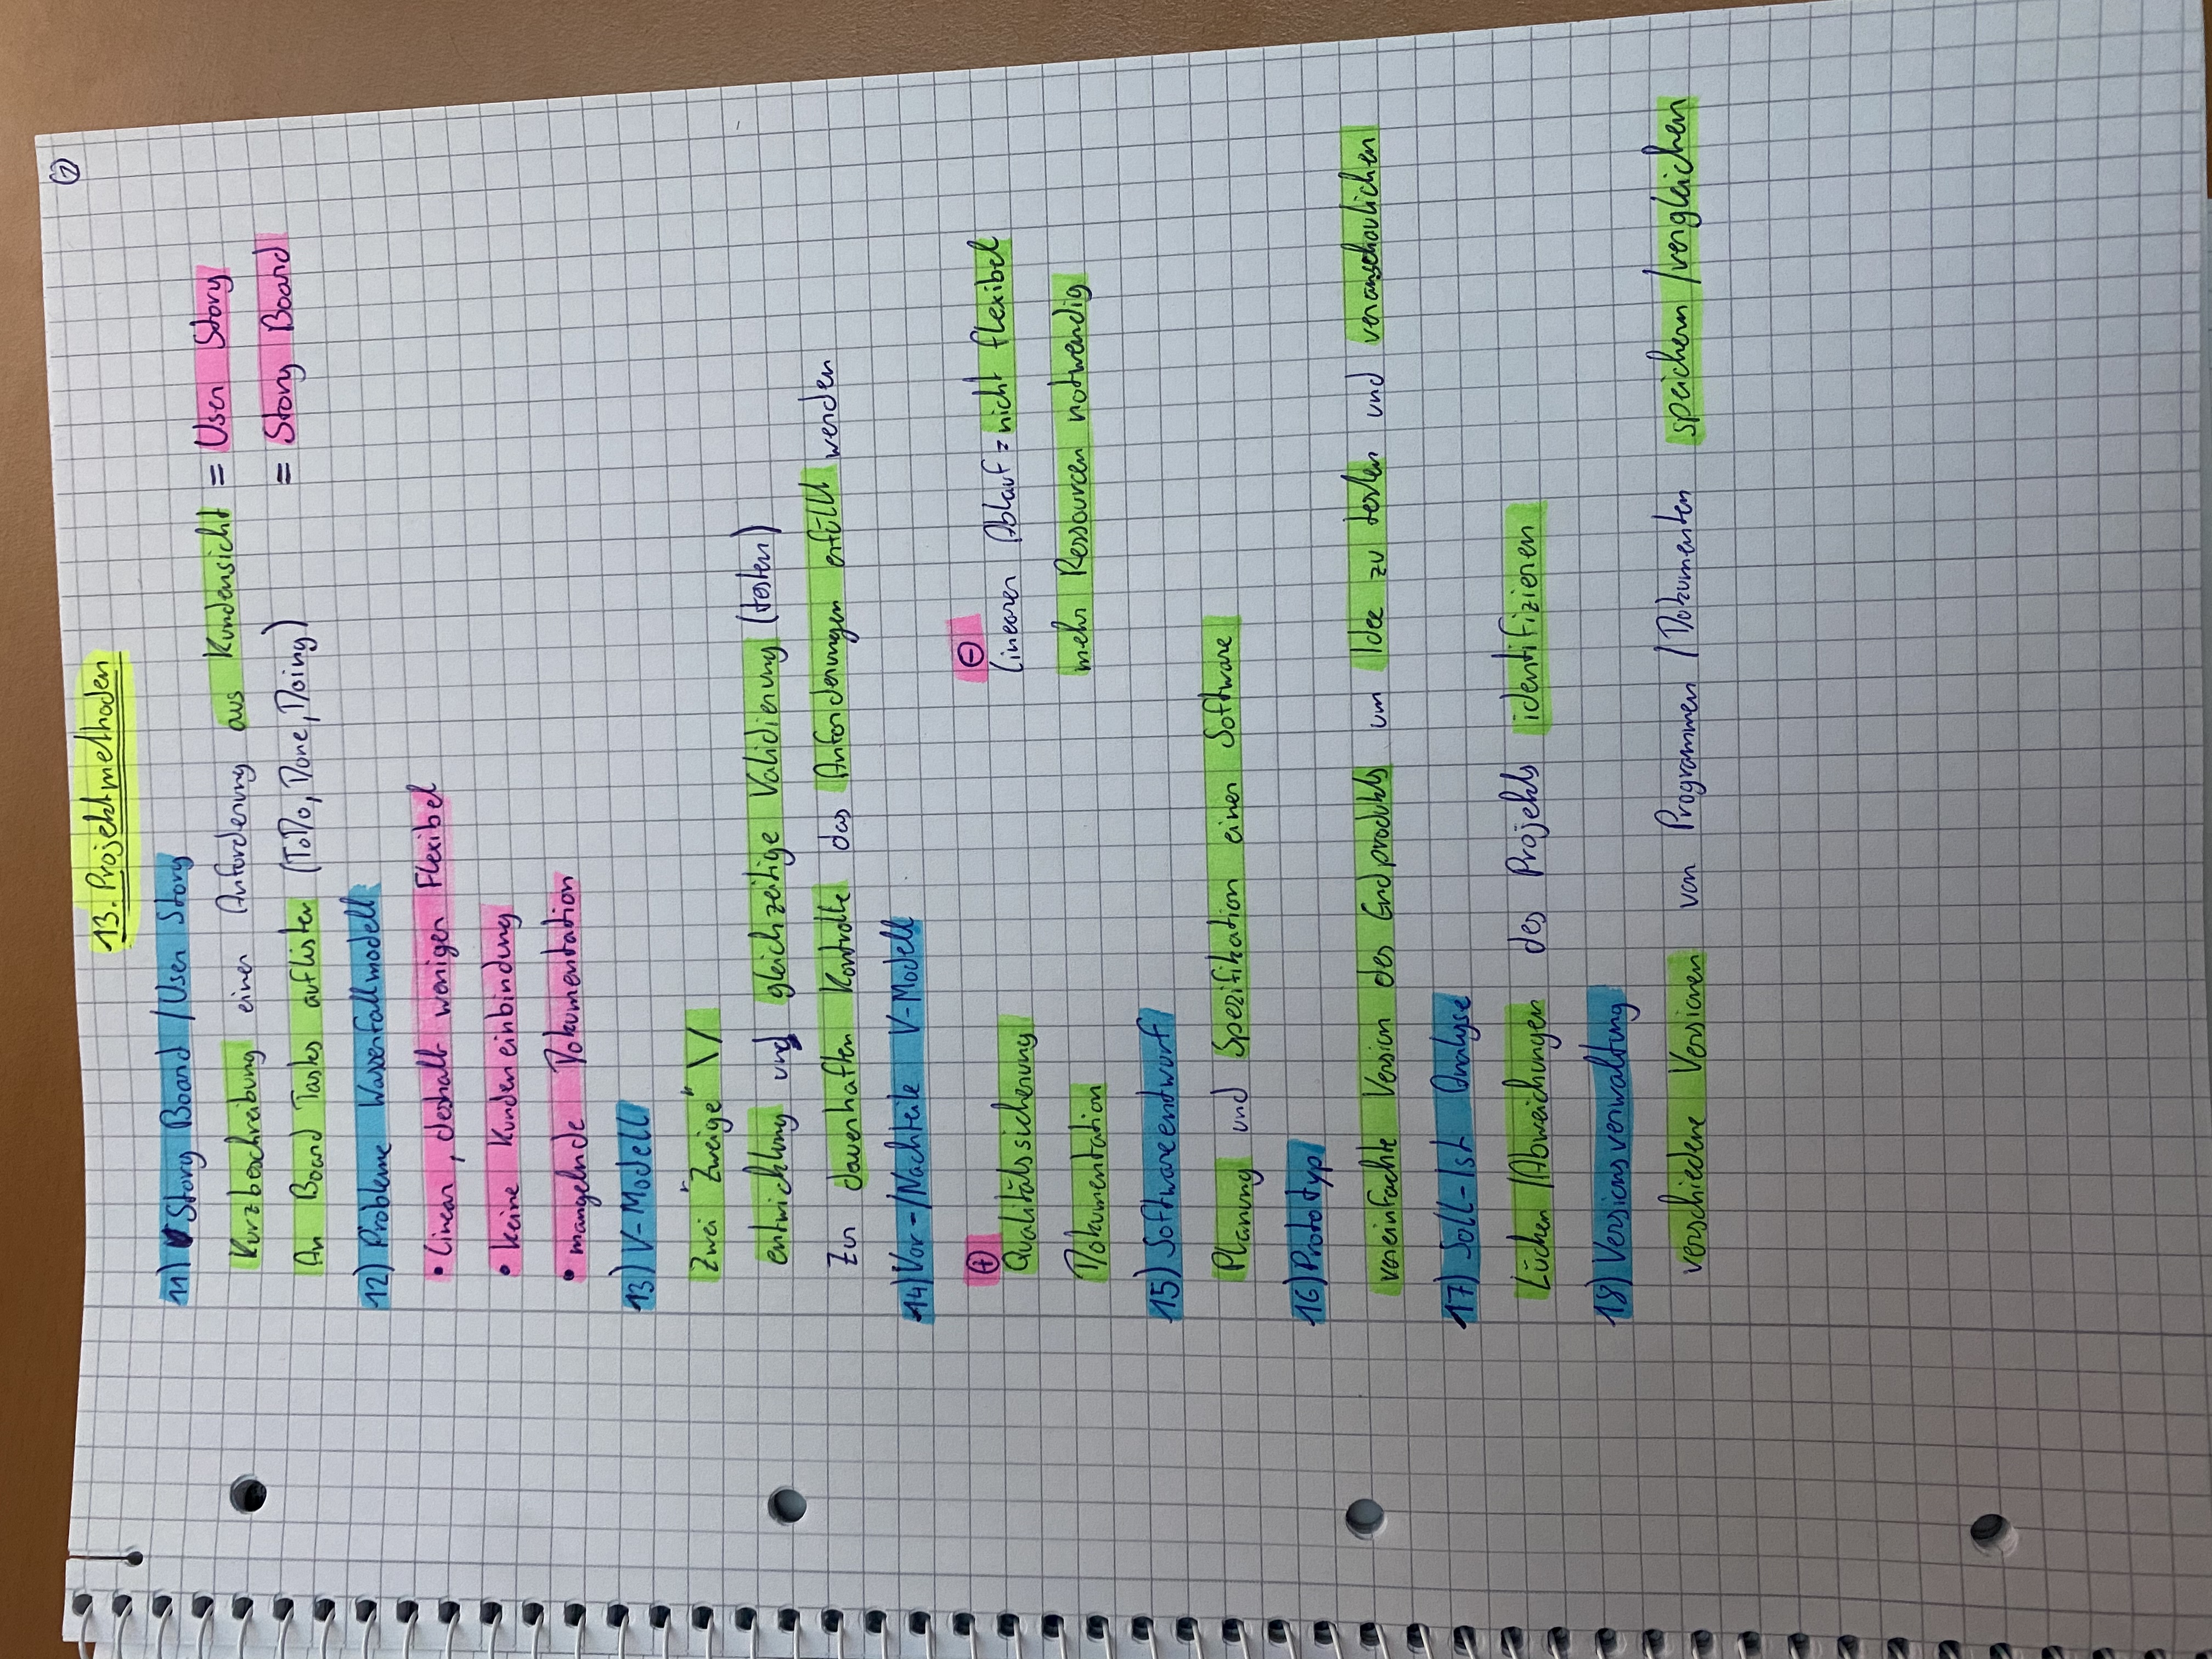 ②
13. Projektmethoden
11) Story Board / User Story
Kurzbeschreibung einer Anforderung aus Kundensicht = User Story
An Board Tasks auflisten (ToDo, Done, Doing) = Story Board
12) Probleme Wasserfallmodell
• linear, deshalb weniger Flexibel
• keine Kundeneinbindung
• mangelnde Dokumentation
13) V-Modell
Zwei "Zweige" \/
entwicklung und gleichzeitige Validierung (testen)
Zur dauerhaften Kontrolle das Anforderungen erfüllt werden
14) Vor-/Nachteile V-Modell
⊕ ⊖
Qualitätssicherung linearer Ablauf = nicht flexibel
Dokumentation mehr Ressourcen notwendig
15) Softwareentwurf
Planung und Spezifikation einer Software
16) Prototyp
vereinfachte Version des Endprodukts um Idee zu testen und veranschaulichen
17) Soll-Ist Analyse
Lücken / Abweichungen des Projekts identifizieren
18) Versionsverwaltung
verschiedene Versionen von Programmen / Dokumenten speichern / vergleichen